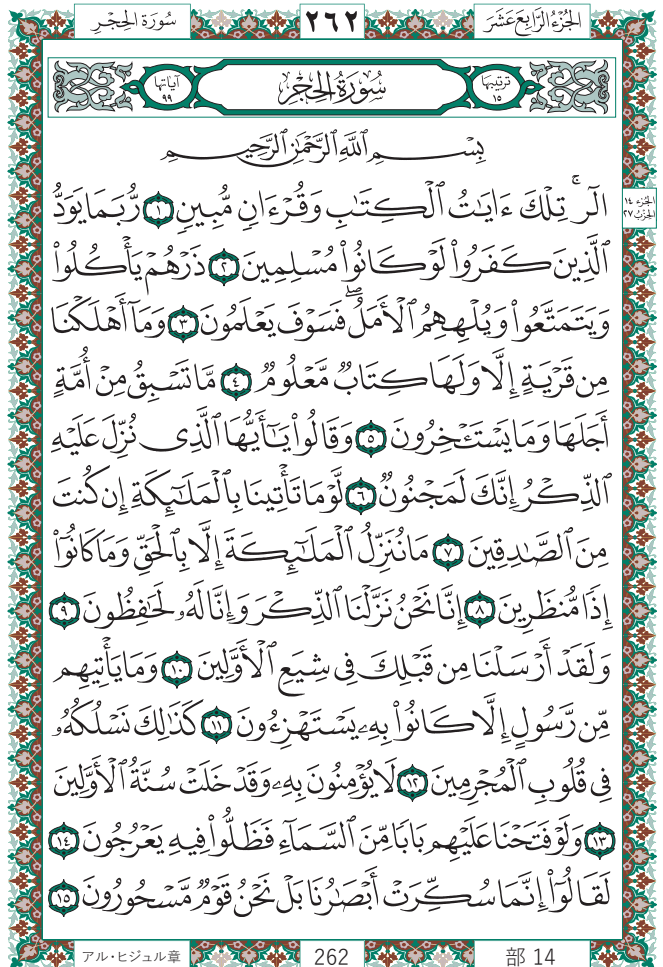 الجُزْءُ الرَّابِعَ عَشَرَ
٢٦٢
سُورَةُ الحِجْرِ
ترتيبها ١٥
سُورَةُ الحِجْرِ
آياتها ٩٩
بِسْمِ ٱللَّهِ ٱلرَّحْمَٰنِ ٱلرَّحِيمِ
الٓرۚ تِلْكَ ءَايَٰتُ ٱلْكِتَٰبِ وَقُرْءَانٍ مُّبِينٍ ١ رُّبَمَا يَوَدُّ
الجزء ١٤
الحزب ٢٧
ٱلَّذِينَ كَفَرُوا۟ لَوْ كَانُوا۟ مُسْلِمِينَ ٢ ذَرْهُمْ يَأْكُلُوا۟
وَيَتَمَتَّعُوا۟ وَيُلْهِهِمُ ٱلْأَمَلُۖ فَسَوْفَ يَعْلَمُونَ ٣ وَمَآ أَهْلَكْنَا
مِن قَرْيَةٍ إِلَّا وَلَهَا كِتَابٌ مَّعْلُومٌ ٤ مَّا تَسْبِقُ مِنْ أُمَّةٍ
أَجَلَهَا وَمَا يَسْتَـْٔخِرُونَ ٥ وَقَالُوا۟ يَٰٓأَيُّهَا ٱلَّذِى نُزِّلَ عَلَيْهِ
ٱلذِّكْرُ إِنَّكَ لَمَجْنُونٌ ٦ لَّوْ مَا تَأْتِينَا بِٱلْمَلَٰٓئِكَةِ إِن كُنتَ
مِنَ ٱلصَّٰدِقِينَ ٧ مَا نُنَزِّلُ ٱلْمَلَٰٓئِكَةَ إِلَّا بِٱلْحَقِّ وَمَا كَانُوٓا۟
إِذًا مُّنظَرِينَ ٨ إِنَّا نَحْنُ نَزَّلْنَا ٱلذِّكْرَ وَإِنَّا لَهُۥ لَحَٰفِظُونَ ٩
وَلَقَدْ أَرْسَلْنَا مِن قَبْلِكَ فِى شِيَعِ ٱلْأَوَّلِينَ ١٠ وَمَا يَأْتِيهِم
مِّن رَّسُولٍ إِلَّا كَانُوا۟ بِهِۦ يَسْتَهْزِءُونَ ١١ كَذَٰلِكَ نَسْلُكُهُۥ
فِى قُلُوبِ ٱلْمُجْرِمِينَ ١٢ لَا يُؤْمِنُونَ بِهِۦ وَقَدْ خَلَتْ سُنَّةُ ٱلْأَوَّلِينَ
١٣ وَلَوْ فَتَحْنَا عَلَيْهِم بَابًا مِّنَ ٱلسَّمَآءِ فَظَلُّوا۟ فِيهِ يَعْرُجُونَ ١٤
لَقَالُوٓا۟ إِنَّمَا سُكِّرَتْ أَبْصَٰرُنَا بَلْ نَحْنُ قَوْمٌ مَّسْحُورُونَ ١٥
アル・ヒジュル章
262
部 14